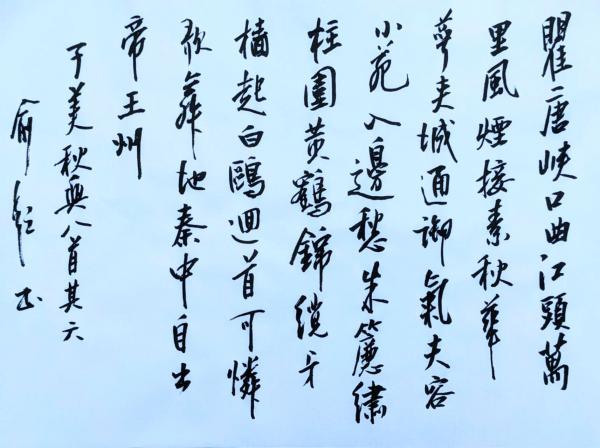 瞿唐峽口曲江頭萬
里風煙接素秋華
萼夾城通御氣夫容
小苑入邊愁朱簾繡
柱圍黃鶴錦纜牙
檣起白鷗迴首可憐
歌舞地秦中自古
帝王州
子美秋興八首其六
俞 书